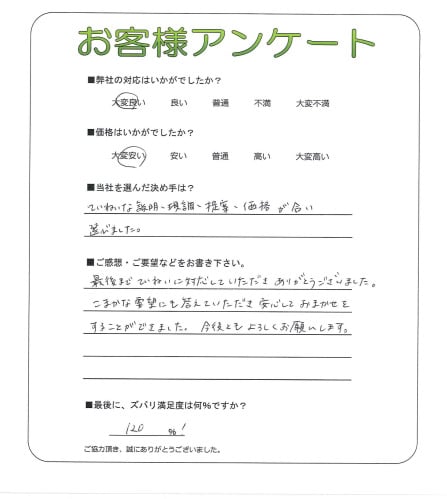 お客様アンケート
■弊社の対応はいかがでしたか?
大変良い 良い 普通 不満 大変不満
■価格はいかがでしたか?
大変安い 安い 普通 高い 大変高い
■当社を選んだ決め手は?
ていねいな説明、現調、提案、価格が合い
選びました。
■ご感想・ご要望などをお書き下さい。
最後までていねいに対応していただきありがとうございました。
こまかな要望にも答えていただき安心しておまかせを
することができました。今後ともよろしくお願いします。
■最後に、ズバリ満足度は何%ですか?
120 %!
ご協力頂き、誠にありがとうございました。